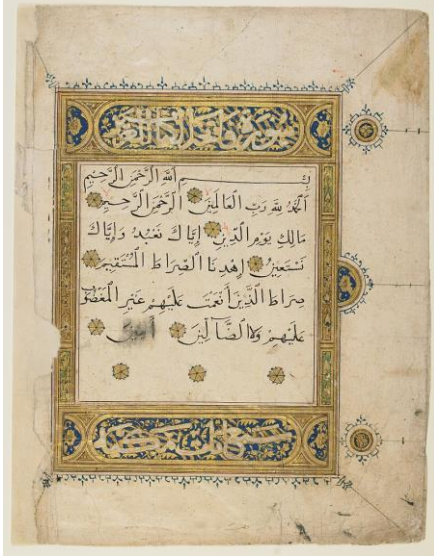 بِسْمِ اللَّهِ الرَّحْمَنِ الرَّحِيمِ
اَلْحَمْدُ لِلَّهِ رَبِّ الْعَالَمِينَ الرَّحْمَنِ الرَّحِيمِ
مَالِكِ يَوْمِ الدِّينِ إِيَّاكَ نَعْبُدُ وَإِيَّاكَ
نَسْتَعِينُ اِهْدِنَا الصِّرَاطَ الْمُسْتَقِيمَ
صِرَاطَ الَّذِينَ أَنْعَمْتَ عَلَيْهِمْ غَيْرِ الْمَغْضُوبِ
عَلَيْهِمْ وَلَا الضَّآلِّينَ آمين